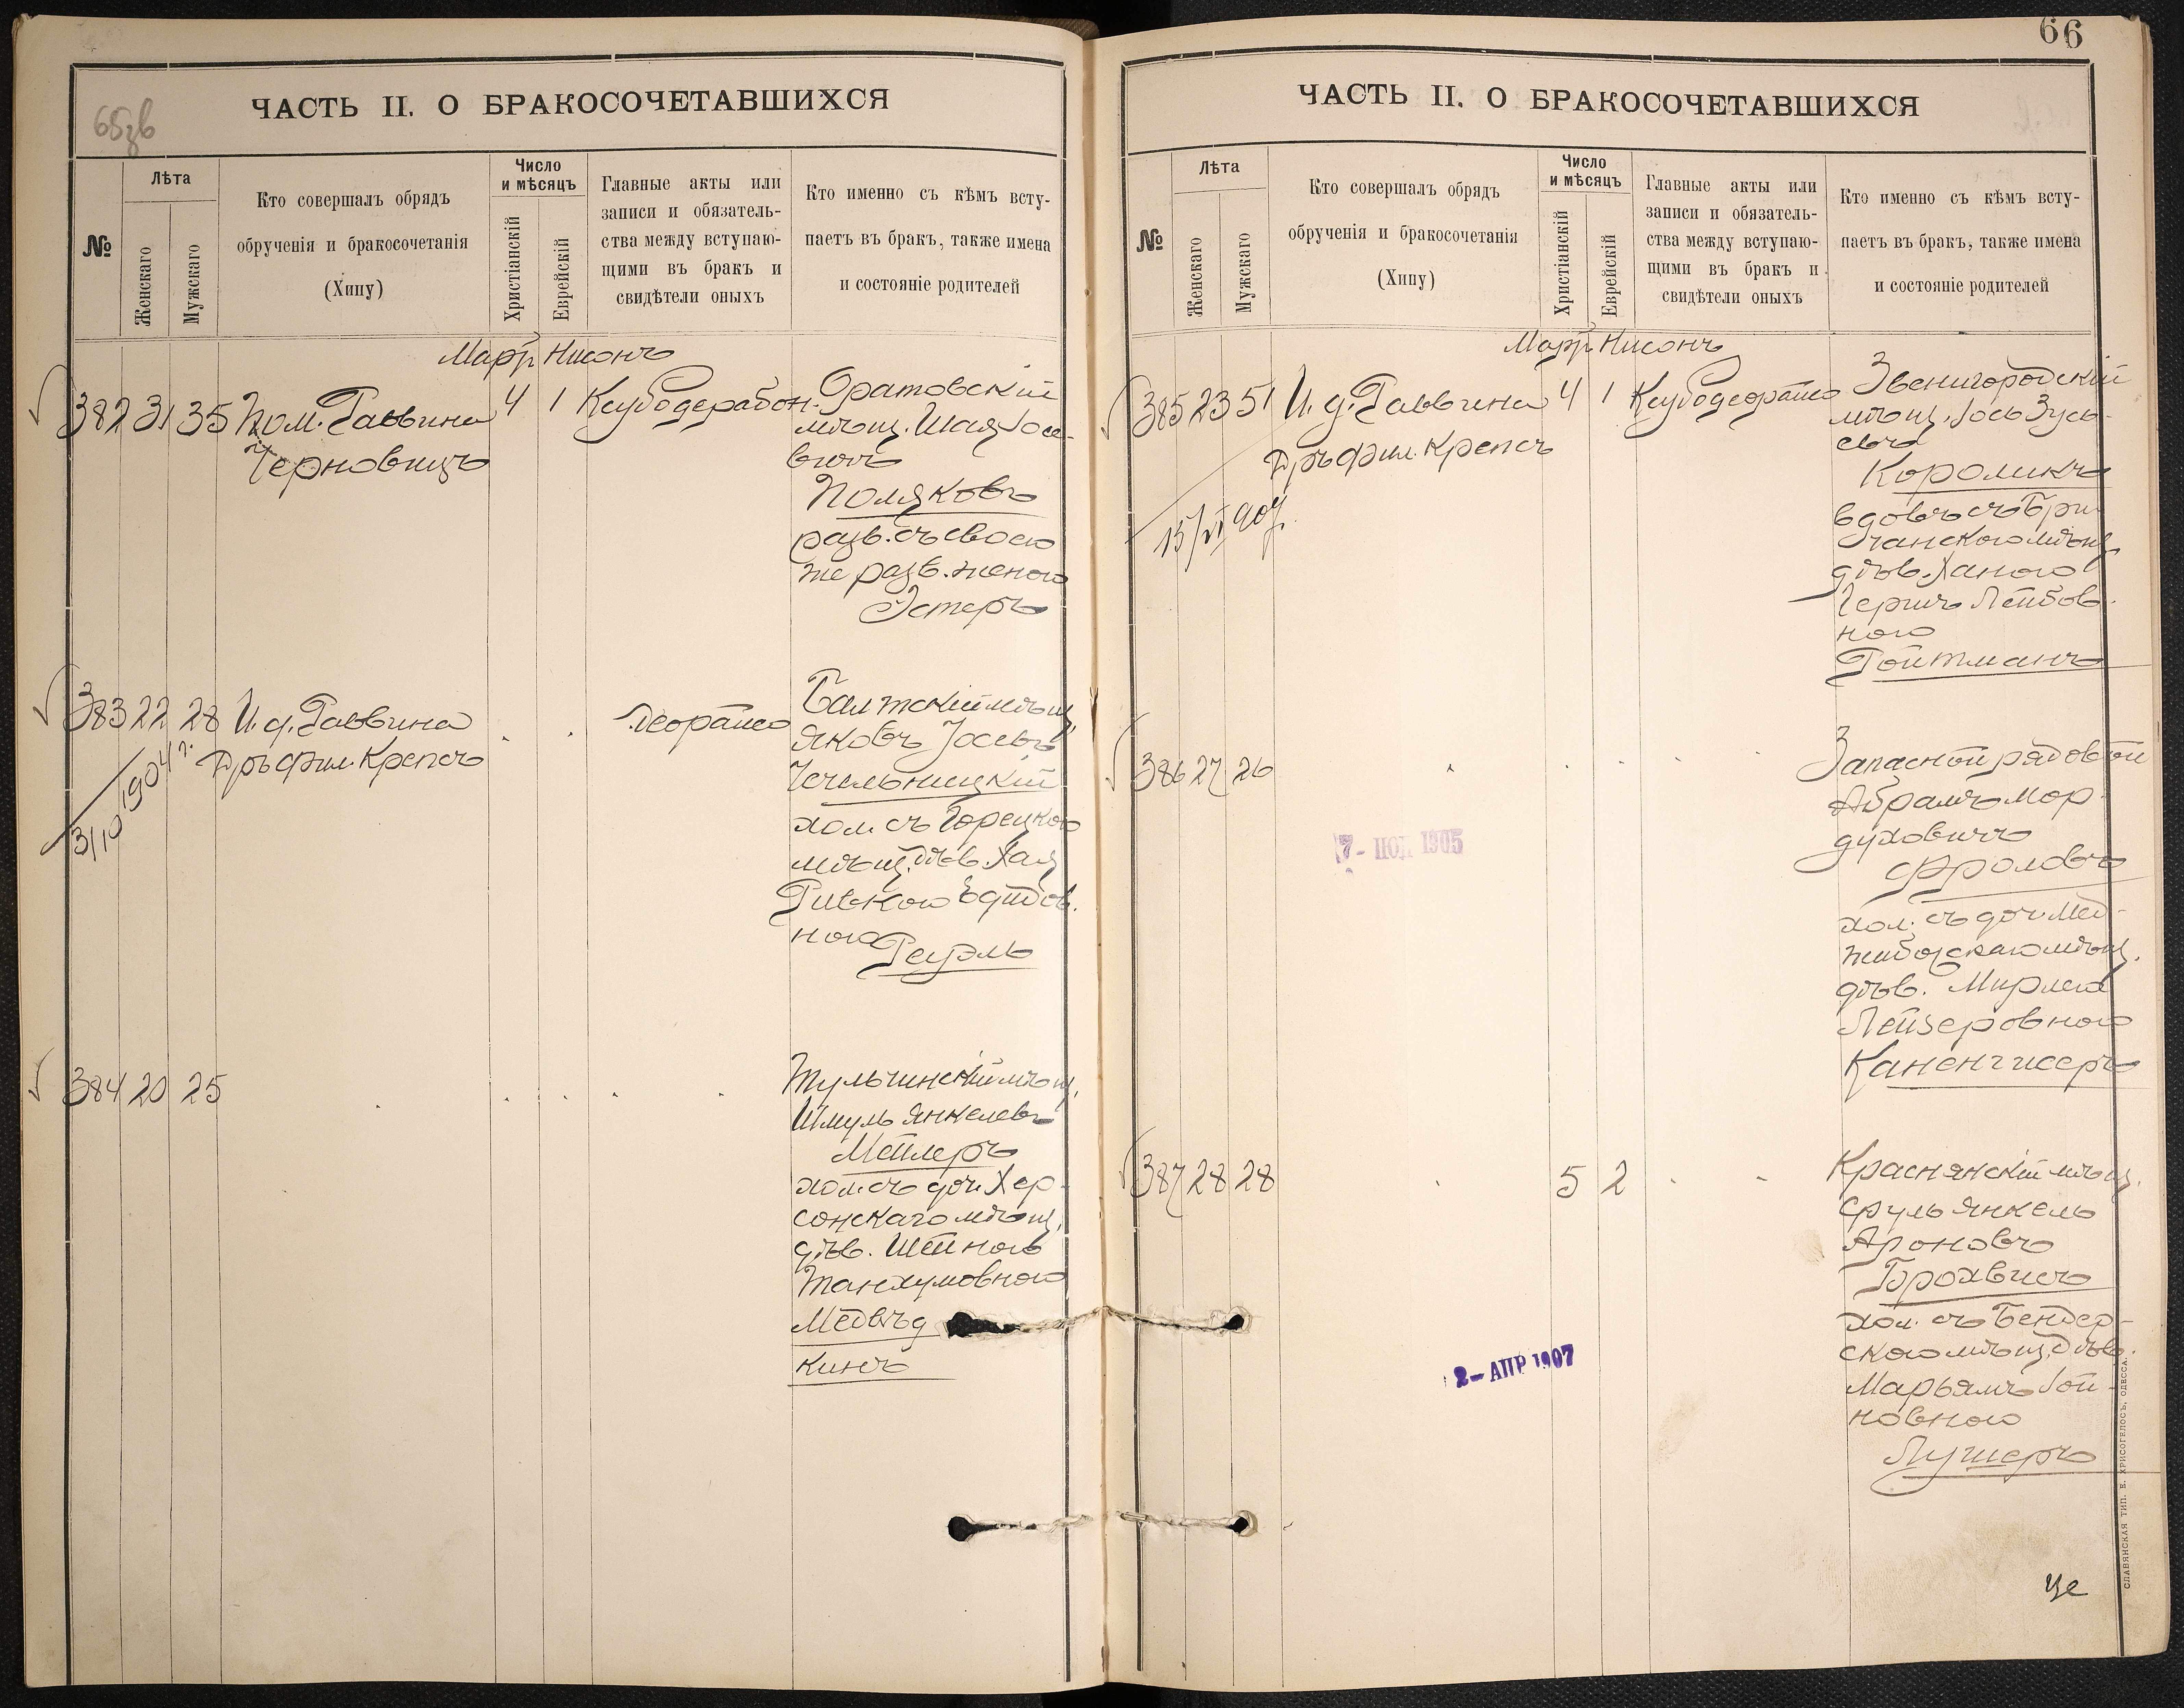 65зв
ЧАСТЬ II. О БРАКОСОЧЕТАВШИХСЯ
№
Лѣта
Женскаго
Мужскаго
Кто совершалъ обрядъ
обрученія и бракосочетанія
(Хипу)
Число
и мѣсяцъ
Христіанскій
Еврейскій
Главные акты или
записи и обязатель-
ства между вступаю-
щими въ бракъ и
свидѣтели оныхъ
Кто именно съ кѣмъ всту-
паетъ въ бракъ, также имена
и состояніе родителей
Мартъ Нисонъ
382 31 35 Пом. Раввина 4 1
Черновицъ
Оратовскій
мѣщ. Шая Іосе-
вичъ
Поляковъ
разв. съ своею
же разв. женою
Эстеръ
383 22 28 И. д. Раввина деорайсо
Дръ фил. Крепсъ
3/10 1904 г.
Балтскій мѣщ.
Яковъ Іосевъ
Чечельницкій
хол. съ Горецкою
мѣщ. дѣв. Хая
Ривкою
ною Реуэль
384 20 25
Тульчинскій мѣщ.
Шмуль Янкелевъ
Мейлеръ
хол. съ доч. Хер-
сонскаго мѣщ.
дѣв. Шейною
Танхумовною
Медвѣд
кинъ
66
ЧАСТЬ II. О БРАКОСОЧЕТАВШИХСЯ
№
Лѣта
Женскаго
Мужскаго
Кто совершалъ обрядъ
обрученія и бракосочетанія
(Хипу)
Число
и мѣсяцъ
Христіанскій
Еврейскій
Главные акты или
записи и обязатель-
ства между вступаю-
щими въ бракъ и
свидѣтели оныхъ
Кто именно съ кѣмъ всту-
паетъ въ бракъ, также имена
и состояніе родителей
Мартъ Нисонъ
385 23 51 И. д. Раввина 4 1 Ксубодеорайсо
Дръ фил. Крепсъ
15/VI 907
Звенигородскій
мѣщ. Іось Зусь-
евъ
Короликъ
вдовъ съ Бри-
чанскою мѣщ.
дѣв. Ханою
Гершъ Лейбов-
ною
Ройтманъ
386 27 26
7 - ІЮЛ 1905
Запасной рядовой
Абрамъ Мор-
духовичъ
Фроловъ
хол. съ доч. Мед-
жибожскаго мѣщ.
дѣв. Мирлею
Лейзеровною
Каненгисеръ
387 28 28 5 2
2 - АПР 1907
Краснянскій мѣщ.
Сруль Янкель
Ароновъ
Брохвисъ
хол. съ Бендер-
скою мѣщ. дѣв.
Марьямъ Іой-
новною
Лушеръ
СЛАВЯНСКАЯ ТИП. Е. ХРИСОГЕЛОСЪ, ОДЕССА.